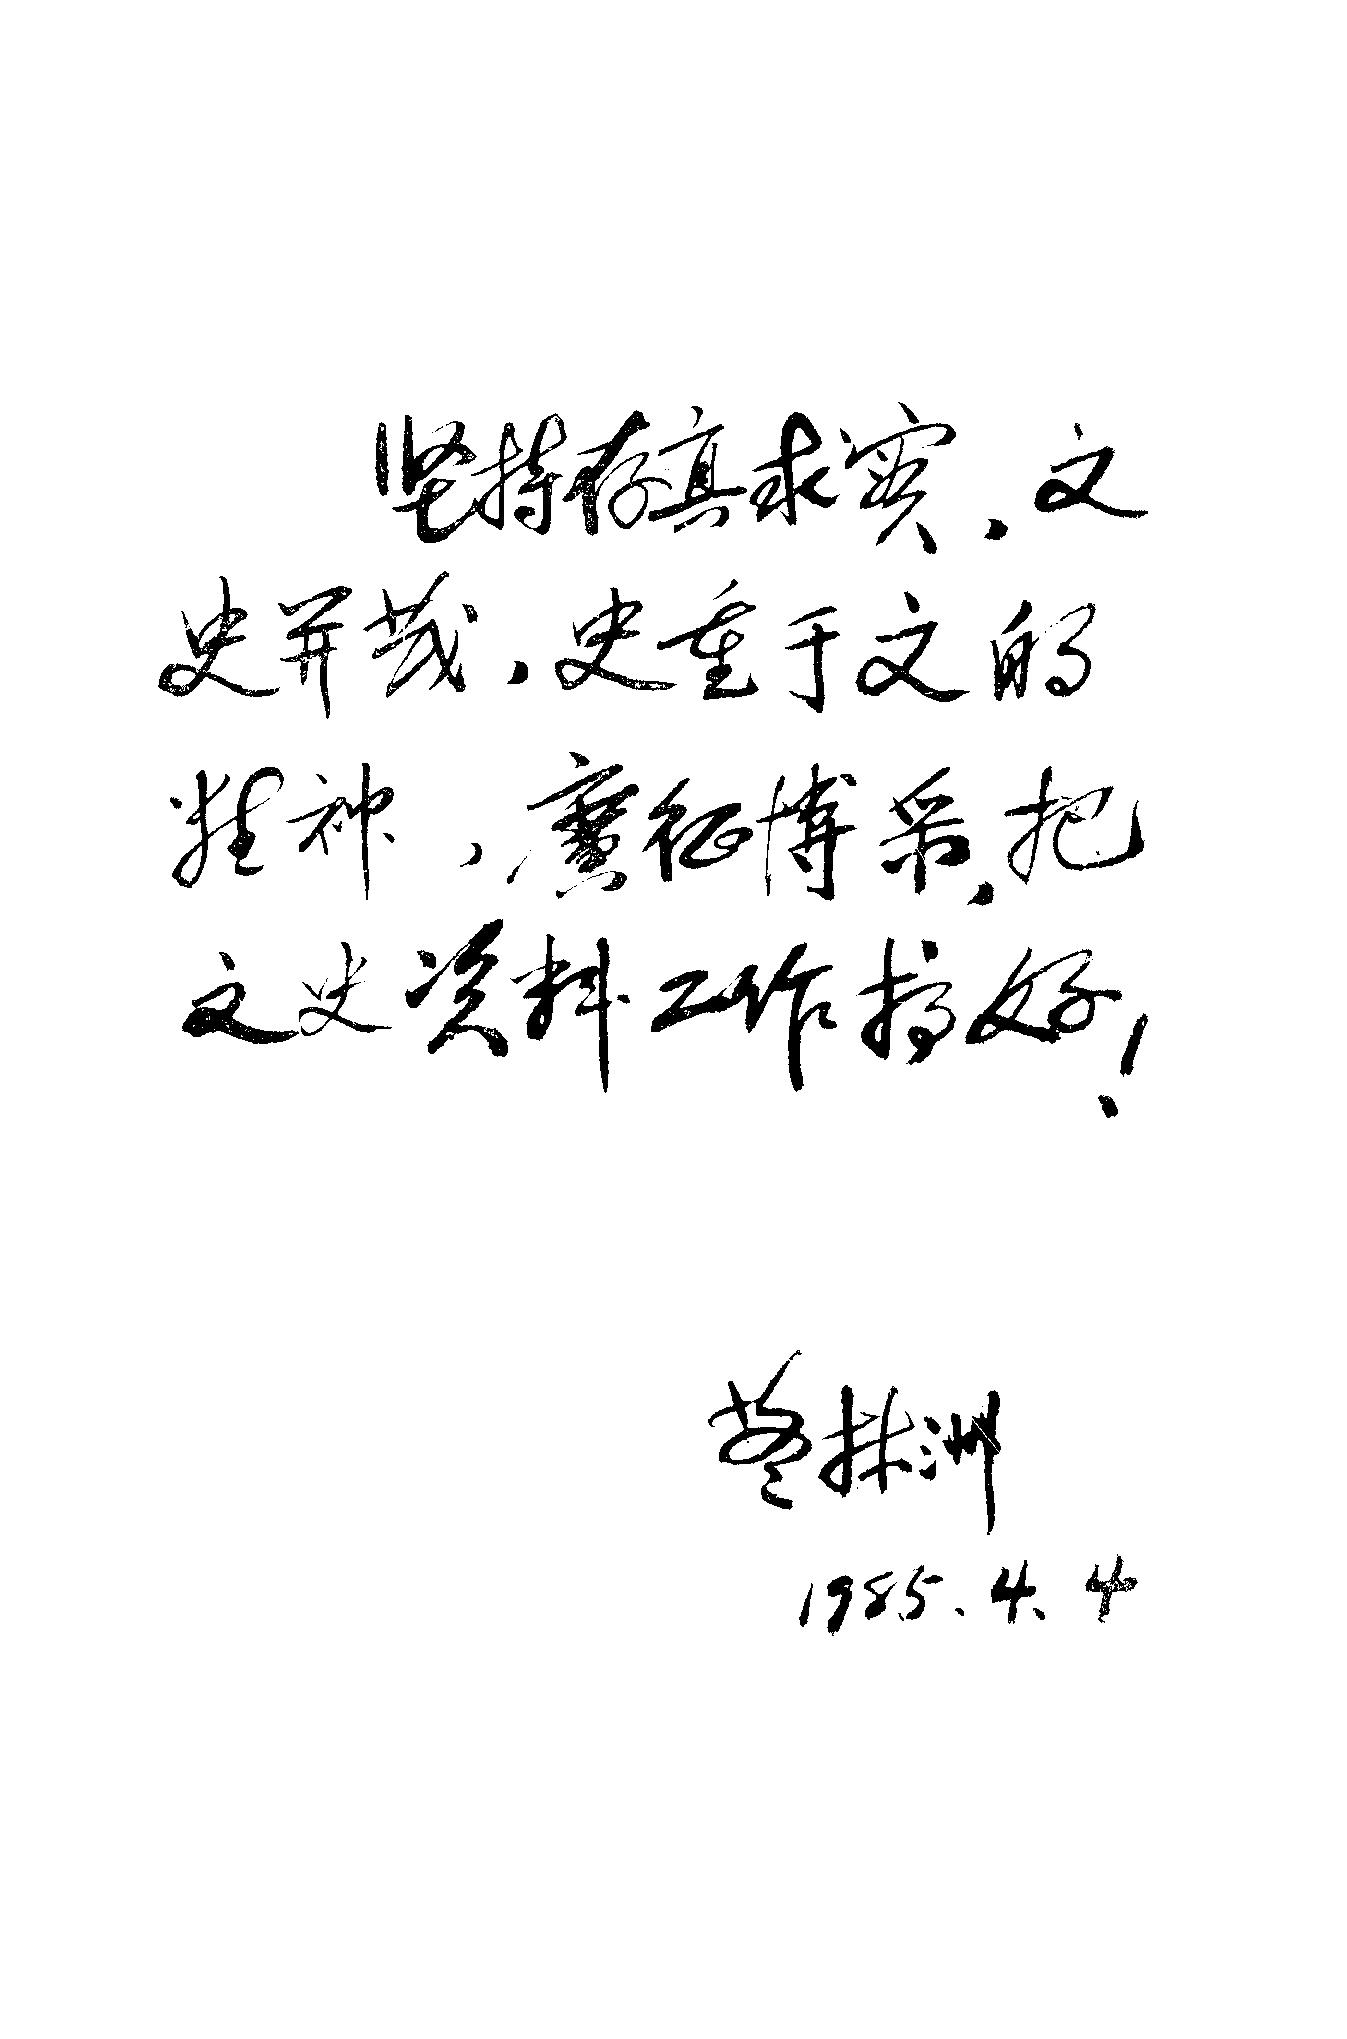 坚持存真求实，文
史并茂，史重于文的
精神，廣征博采，把
文史资料工作搞好！
林洲
1985.4.4